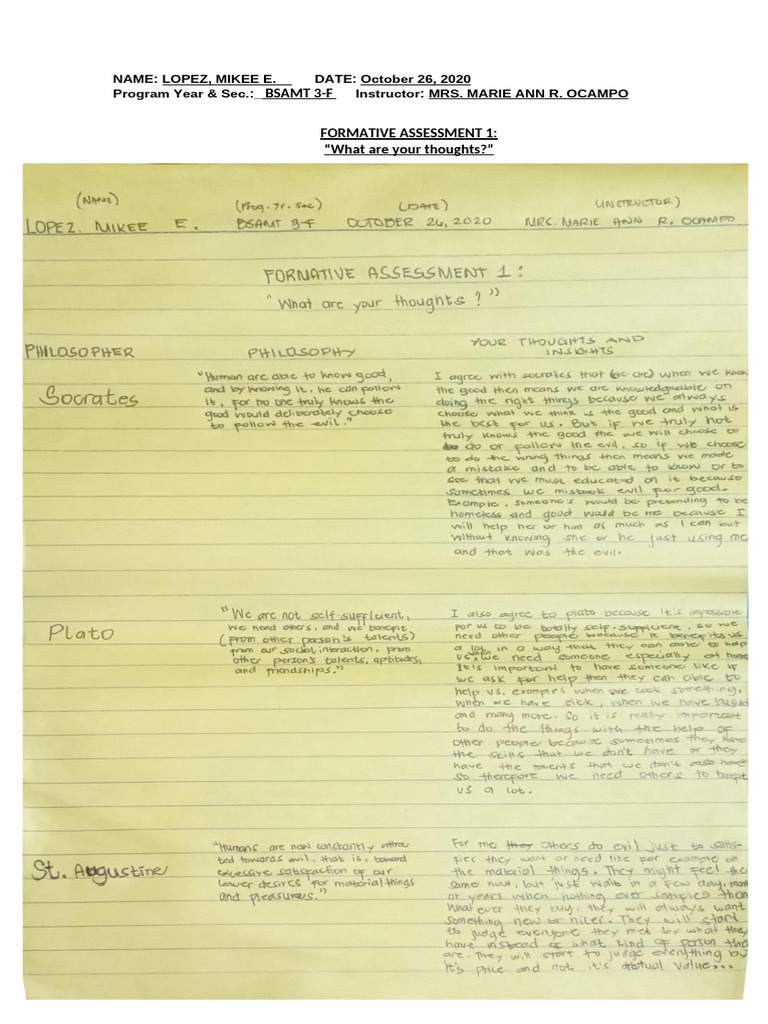 NAME: LOPEZ, MIKEE E. DATE: October 26, 2020
Program Year & Sec.: BSAMT 3-F Instructor: MRS. MARIE ANN R. OCAMPO
FORMATIVE ASSESSMENT 1:
“What are your thoughts?”
(NAME) (Prog. Yr. Sec) (DATE) (INSTRUCTOR)
LOPEZ. MIKEE E. BSAMT 3-F OCTOBER 26, 2020 MRS. MARIE ANN R. OCAMPO
FORMATIVE ASSESSMENT 1:
"What are your thoughts?"
PHILOSOPHER PHILOSOPHY YOUR THOUGHTS AND
INSIGHTS
Socrates
"Human are able to know good,
and by knowing it, he can follow
it, for no one truly knows the
good would deliberately choose
to follow the evil."
I agree with socrates that (we are) when we know
the good then means we are knowledgeable on
doing the right things because we always
choose what we think is the good and what is
the best for us. But if we truly not
truly knows the good the we will choose to
do or follow the evil, so if we choose
to do the wrong things then means we made
a mistake and to be able to know or to
see that we must educated on it because
sometimes we mistook evil for good.
Example, someone's would be pretending to be
homeless and good would be me because I
will help her or him as much as I can but
without knowing she or he just using me
and that was the evil.
Plato
"We are not self-sufficient,
we need others, and we benefit
(from other person's talents)
from our social interaction, from
other person's talents, aptitudes,
and friendships."
I also agree to plato because it's impossible
for us to be totally self-sufficient, so we
need other people because it benefits us
a lot in a way that they can able to help
us, we need someone especially at home
It's important to have someone like if
we ask for help then they can able to
help us, examples when we cook something,
when we have sick, when we have
and many more. So it is really important
to do the things with the help of
other people because sometimes they have
the skills that we don't have or they
have the talents that we don't also have
so therefore we need others to benefit
us a lot.
St. Augustine
"Humans are now constantly attrac
ted towards evil, that is, toward
excessive satisfaction of our
lower desires for material things
and pleasures."
For me they others do evil just to satis-
fies they want or need like for example on
the material things. They might feel the
same now, but just wait in a few day, 
or years when nothing ever satisfies them
Whatever they buy, they will always want
something new or nicer. They will start
to judge everyone they met by what they
have instead of what kind of person they
are. They will start to judge everything by
It's price and not it's actual value...